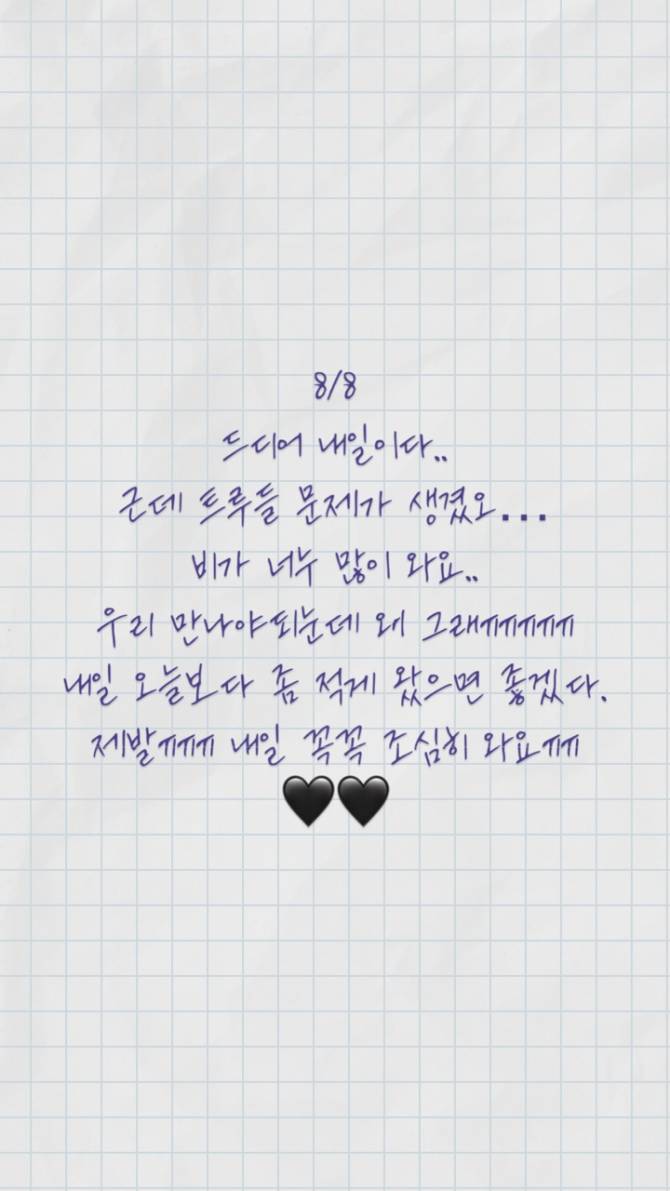 8/8
드디어 내일이다..
근데 트루들 문제가 생겼오...
비가 너누 많이 와요..
우리 만나야되눈데 왜 그래ㅠㅠㅠㅠㅠ
내일 오늘보다 좀 적게 왔으면 좋겠다.
제발ㅠㅠㅠ 내일 꼭꼭 조심히 와요ㅠㅠ
🖤🖤